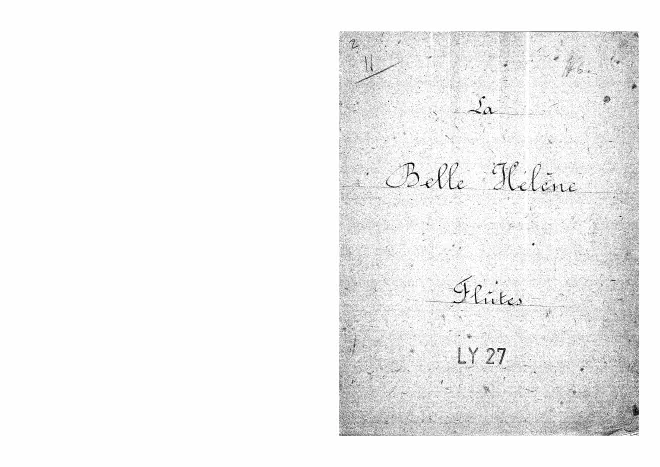 2
11
La
Belle Hélène
Flûtes
LY 27